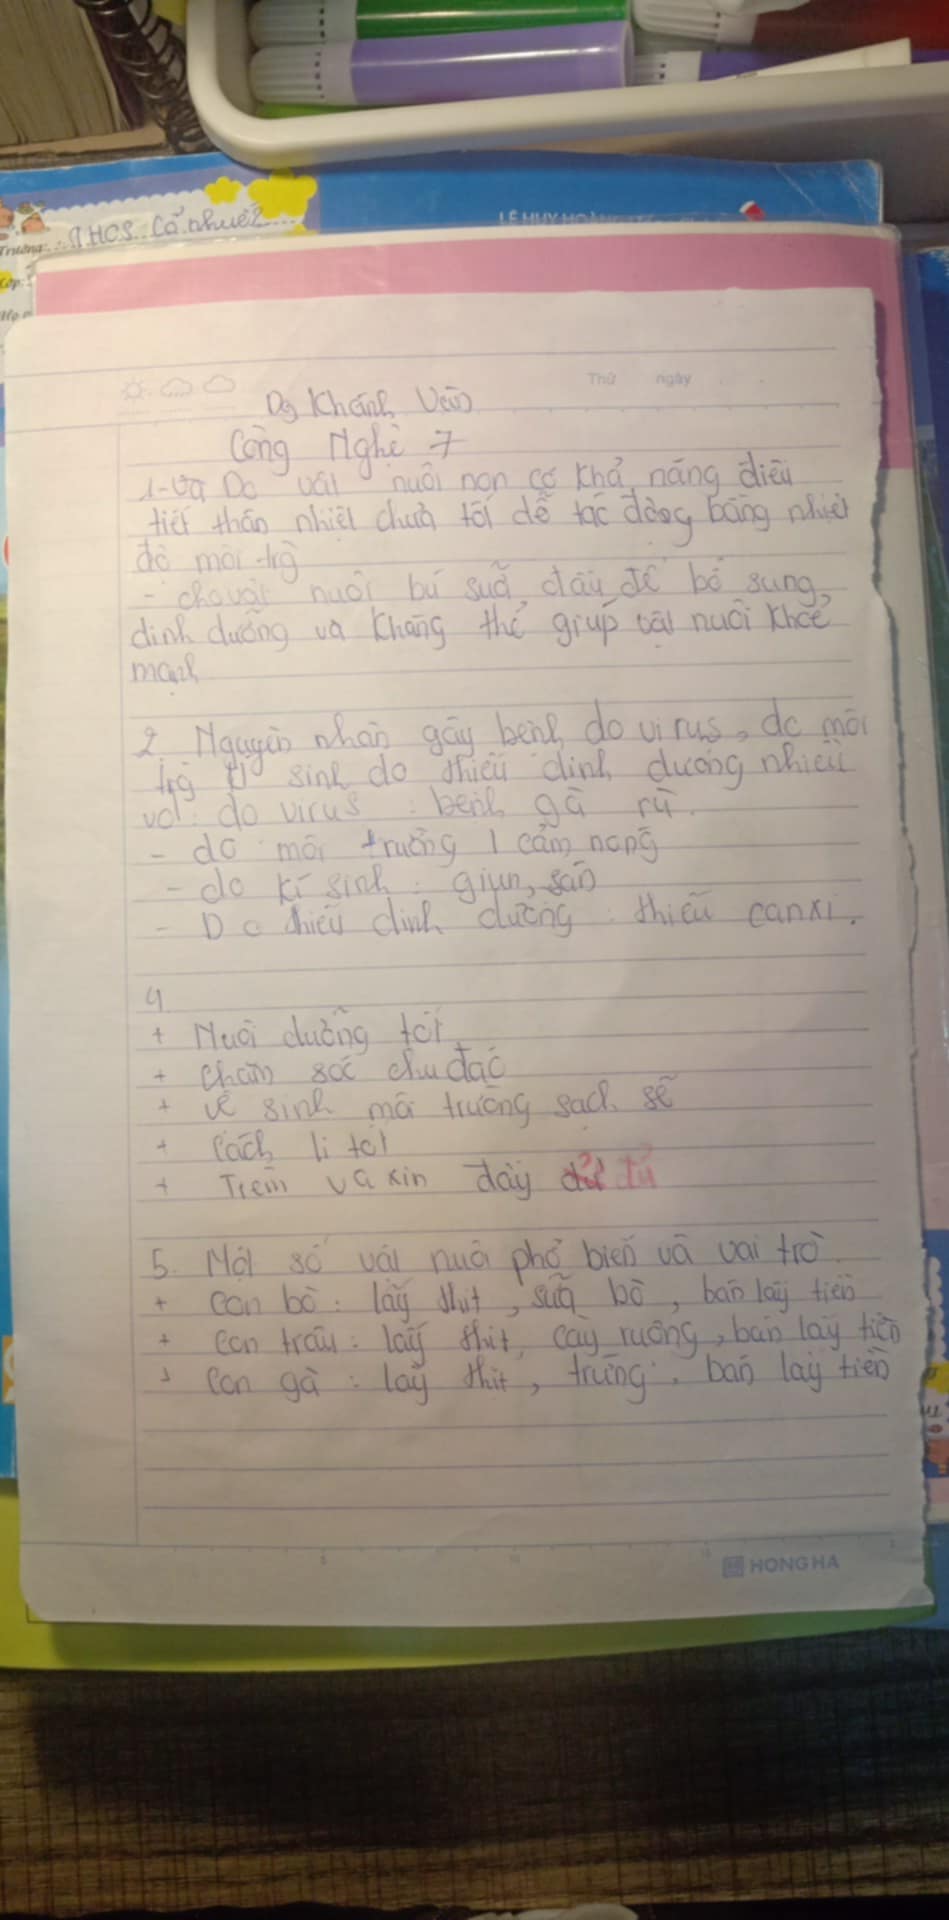 Trường: THCS Cổ Nhuế 2
Lớp:
LÊ HUY HOÀNG
Thứ ngày
Dg Khánh Vân
Công Nghệ 7
1-Và Do vật nuôi non có khả năng điều
tiết thân nhiệt chưa tốt dễ tác động bằng nhiệt
độ môi trg
- cho vật nuôi bú sữa đầu để bổ sung
dinh dưỡng và kháng thể giúp vật nuôi khỏe
mạnh
2. Nguyên nhân gây bệnh do virus, do môi
trg kí sinh do thiếu dinh dưỡng nhiều
vd: do virus : bệnh gà rù.
- do môi trường 1 cảm nóng
- do kí sinh : giun, sán
- Do thiếu dinh dưỡng : thiếu canxi.
4
+ Nuôi dưỡng tốt
+ chăm sóc chu đáo
+ vệ sinh môi trường sạch sẽ
+ Cách li tốt
+ Tiêm va xin đầy đủ
5. Một số vật nuôi phổ biến và vai trò
+ con bò : lấy thịt, sữa bò, bán lấy tiền
+ con trâu : lấy thịt, cày ruộng, bán lấy tiền
+ Con gà : lấy thịt, trứng, bán lấy tiền
5 10 15
HONG HA